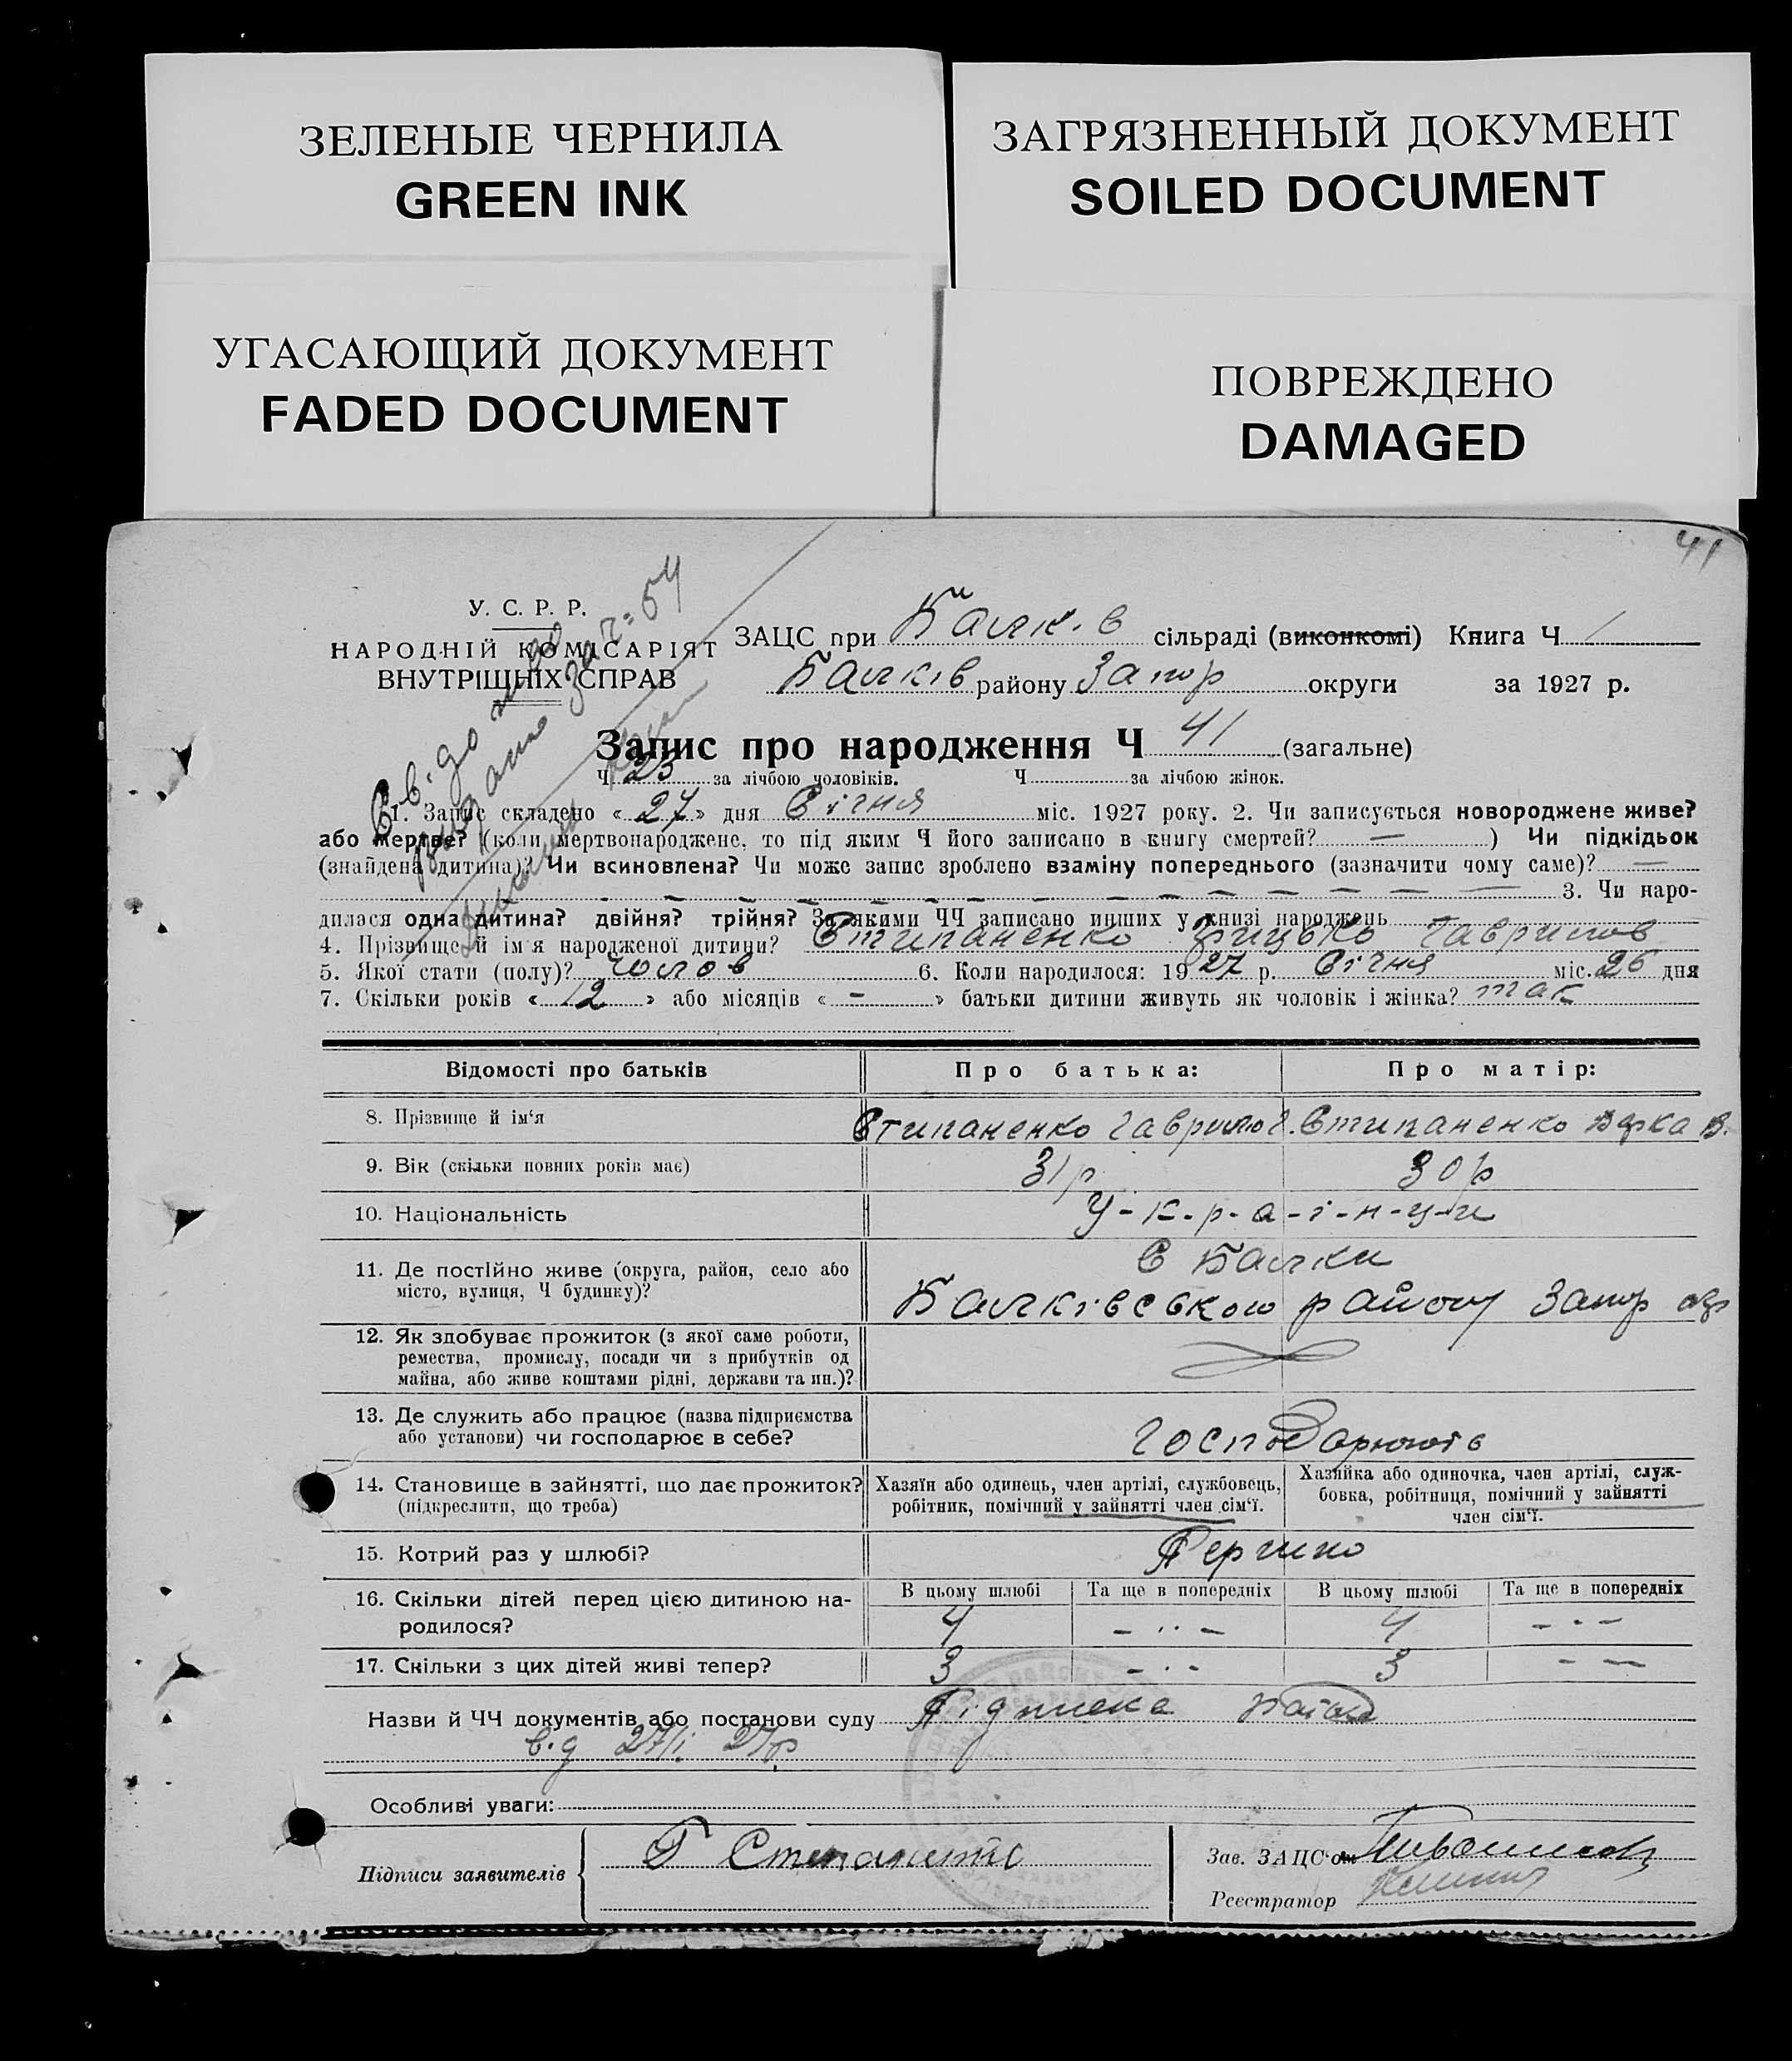 ЗЕЛЕНЫЕ ЧЕРНИЛА
GREEN INK
ЗАГРЯЗНЕННЫЙ ДОКУМЕНТ
SOILED DOCUMENT
УГАСАЮЩИЙ ДОКУМЕНТ
FADED DOCUMENT
ПОВРЕЖДЕНО
DAMAGED
41
У. С. Р. Р.
НАРОДНІЙ КОМІСАРІЯТ
ВНУТРІШНІХ СПРАВ
ЗАЦС при Балків сільраді (виконкомі) Книга Ч 1
Балків району Запор округи за 1927 р.
Запис про народження Ч 41 (загальне)
Ч 23 за лічбою чоловіків. Ч за лічбою жінок.
1. Запис складено « 27 » дня Січня міс. 1927 року. 2. Чи записується новороджене живе?
або мертве? (коли мертвонароджене, то під яким Ч його записано в книгу смертей? — ) Чи підкідьок
(знайдена дитина)? Чи всиновлена? Чи може запис зроблено взаміну попереднього (зазначити чому саме)? —
3. Чи наро-
дилася одна дитина? двійня? трійня? За якими ЧЧ записано инших у книзі народжень
4. Прізвище й ім'я народженої дитини? Стипаненко Грицько Гаврилов
5. Якої стати (полу)? Чолов 6. Коли народилося: 1927 р. Січня міс. 26 дня
7. Скільки років « 12 » або місяців « - » батьки дитини живуть як чоловік і жінка? так
Відомості про батьків Про батька: Про матір:
8. Прізвище й ім'я Стипаненко Гаврило Г. Стипаненко В.
9. Вік (скільки повних років має) 31 р 30 р
10. Національність У-к-р-а-ї-н-ц-и
11. Де постійно живе (округа, район, село або С Балки
місто, вулиця, Ч будинку)? Балківського району Запор окр
12. Як здобуває прожиток (з якої саме роботи,
ремества, промислу, посади чи з прибутків од
майна, або живе коштами рідні, держави та ин.)?
13. Де служить або працює (назва підприємства
або установи) чи господарює в себе? Господарюють
14. Становище в зайнятті, що дає прожиток? Хазяїн або одинець, член артілі, службовець, Хазяйка або одиночка, член артілі, служ-
(підкреслити, що треба) робітник, помічний у зайнятті член сім'ї. бовка, робітниця, помічний у зайнятті
член сім'ї.
15. Котрий раз у шлюбі? Перший
16. Скільки дітей перед цією дитиною на- В цьому шлюбі Та ще в попередніх В цьому шлюбі Та ще в попередніх
родилося? 4 - - 4 - - -
17. Скільки з цих дітей живі тепер? 3 - - - 3 - -
Назви й ЧЧ документів або постанови суду Підписка
від 27/I 27р
Особливі уваги:
Підписи заявителів Г Степаненко Зав. ЗАЦС'ом
Реєстратор